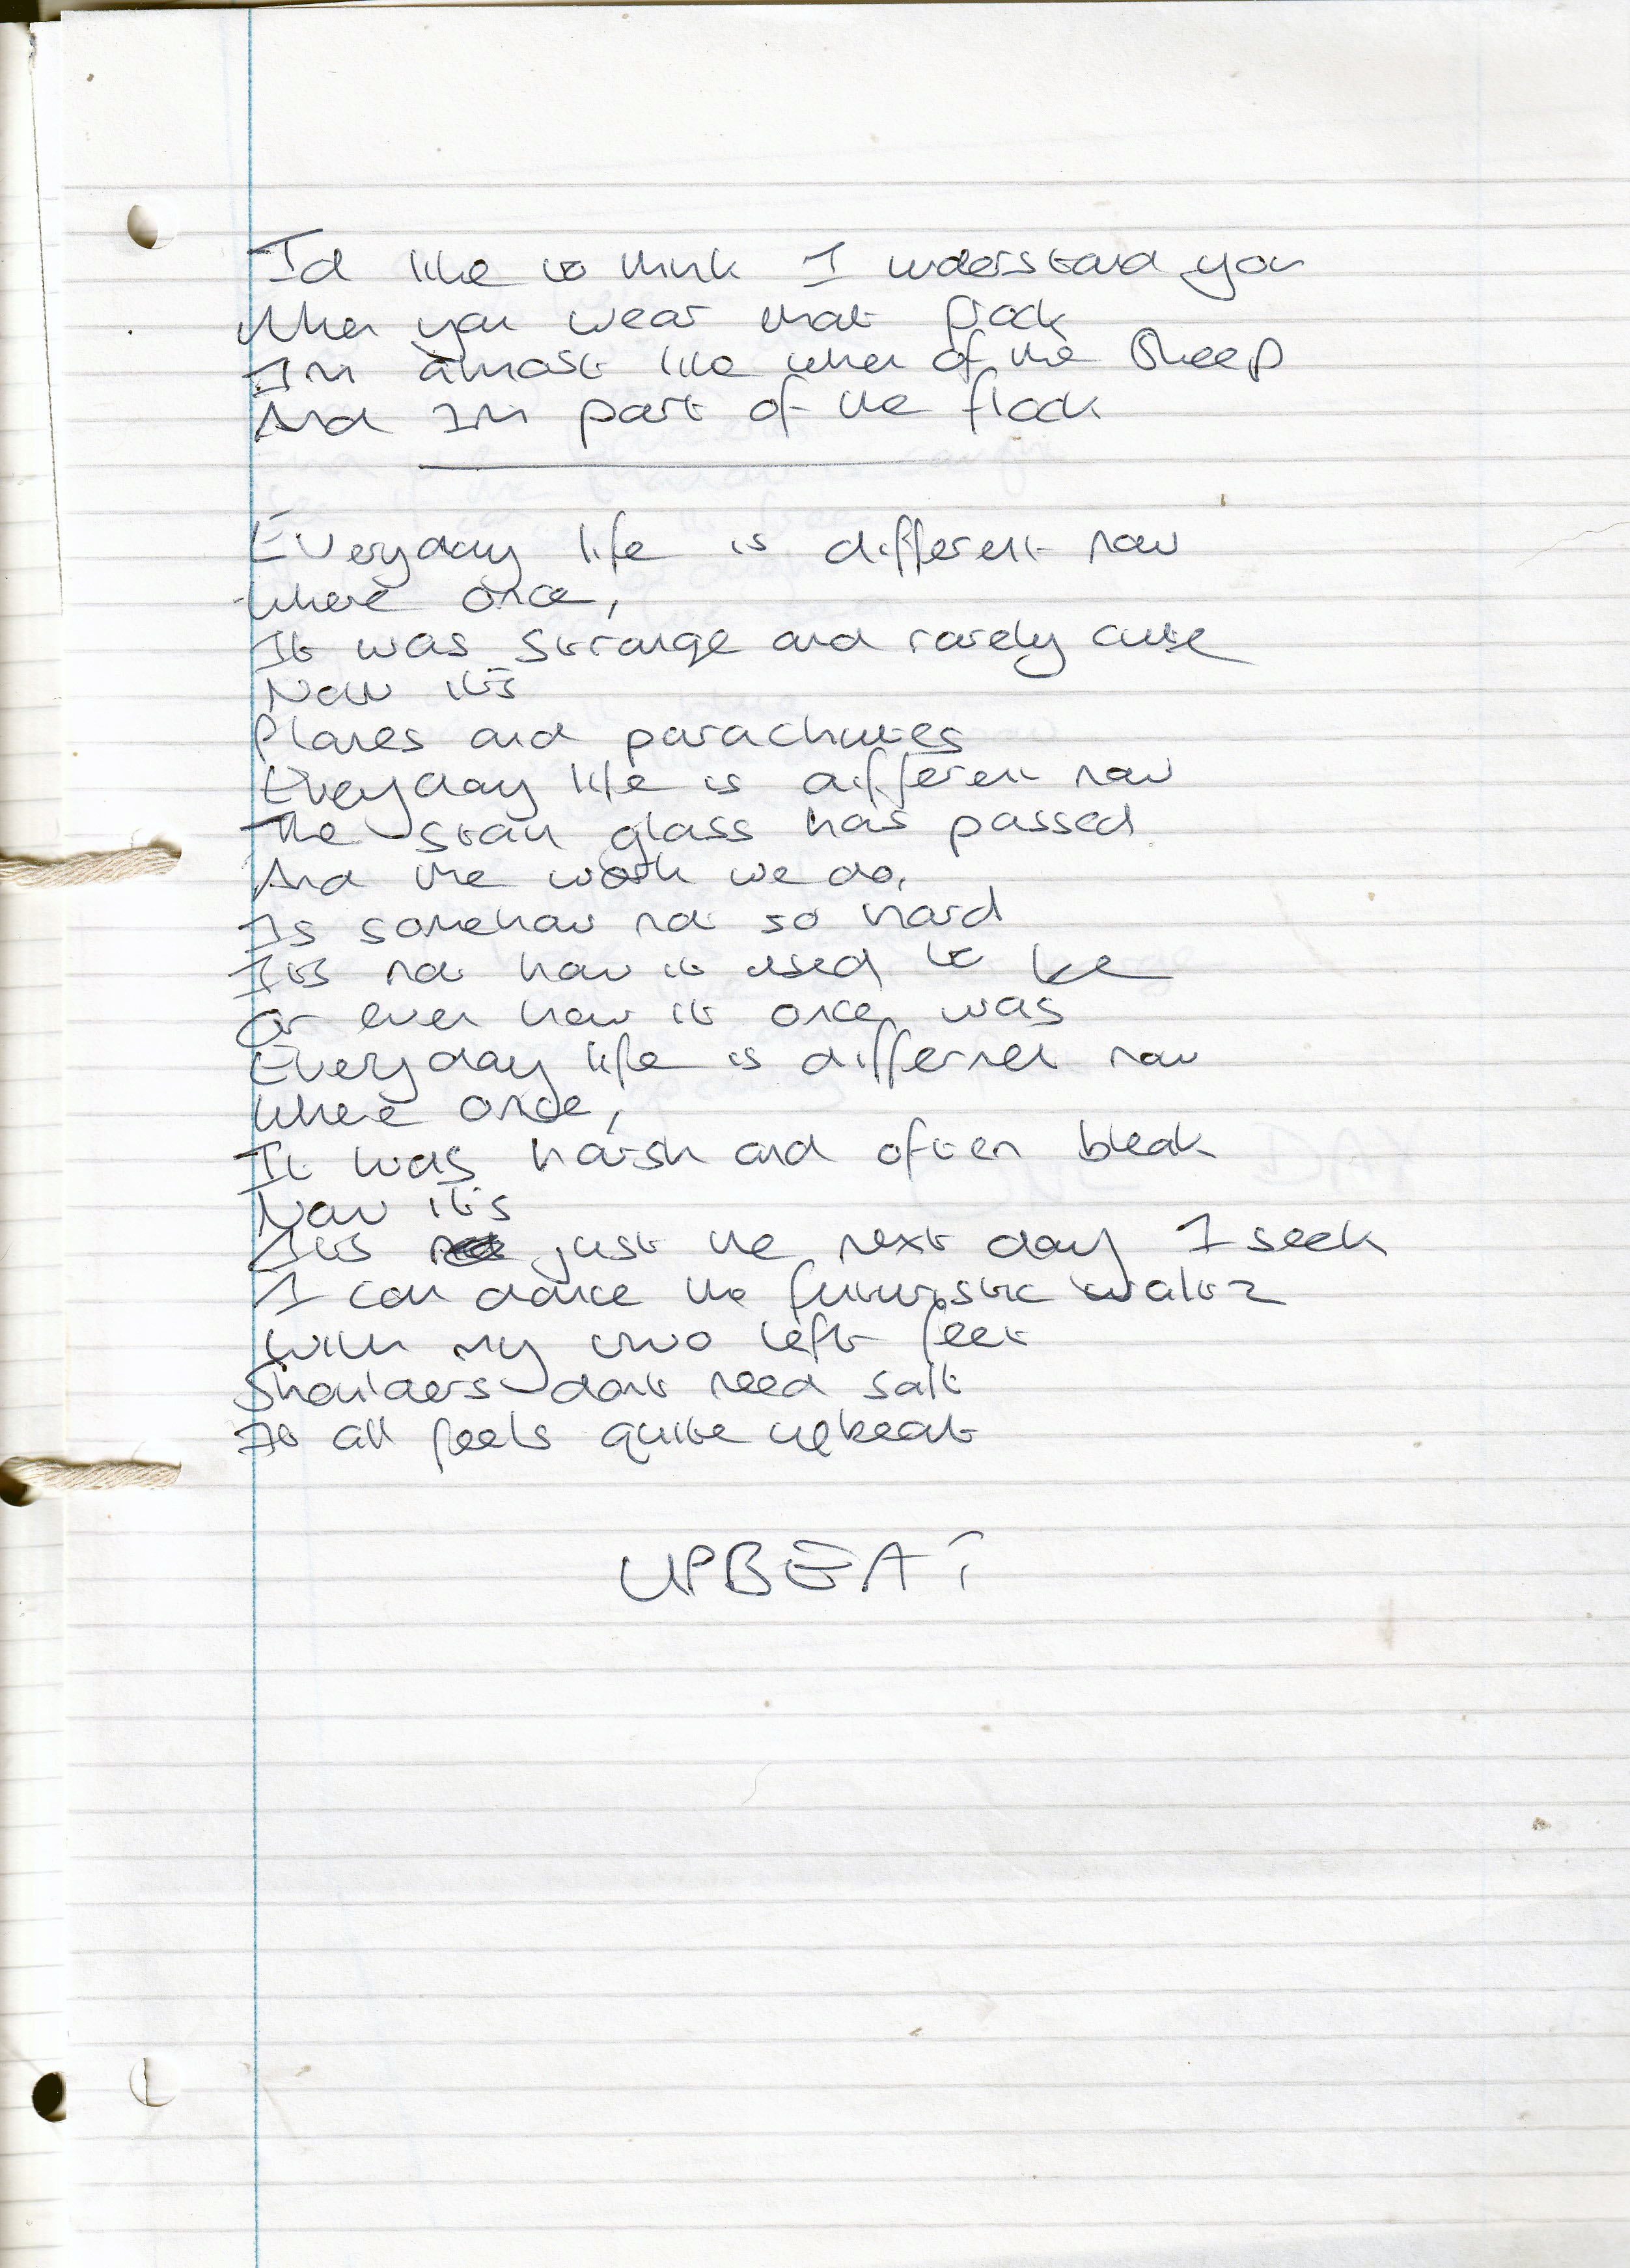 I'd like to think I understand you
When you wear that frock
I'm almost like when of the sheep
And I'm part of the flock
Everyday life is different now
where once,
It was strange and rarely cute
Now it's
Planes and parachutes
Everyday life is different now
The stain glass has passed
And the work we do,
Is somehow not so hard
It's not how it used to be
Or even how it once was
Everyday life is differnet now
where once,
It was harsh and often bleak
Now it's
It's just the next day I seek
I can dance the futuristic waltz
with my two left feet
Shoulders dont need salt
It all feels quite upbeat
UPBEAT